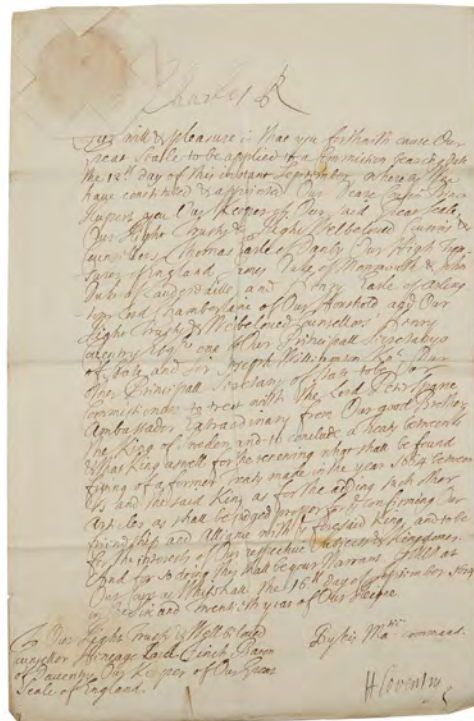 Charles R
Our will & pleasure is that you forthwith cause Our
Great Seale to be applied to a Commission bearing date
the day of this instant September, whereby We
have constituted & appointed Our Deare Prince
Rupert, you Our Keeper of Our said Great Seale,
Our Right Trusty & Right Welbeloved &
Counsellors Thomas Earle of Danby Our High Trea
surer of England James Duke of Monmouth & John
Duke of Lauderdaill and Henry Earle of Arling
ton Lord Chamberlaine of Our Houshold and Our
Right Trusty & Welbeloved Counsellors Henry
Coventry Esqr. one of Our Principall Secretarys
of State and Sir Joseph Williamson Kt
other Principall Secretary of State to be Our
Commissioners to treat with the Lord
Ambassador Extraordinary from Our good Brother
the King of Sweden and to conclude a treaty betweene
Us & that King aswell for the renewing what shall be found
of a former Treaty made in the year betweene
Us and the said King as for the adding such other
Articles as shall be judged proper for confirming Our
friendship and with ye foresaid King, and to be
for the interests of Our respective & Kingdomes
And for so doing this shall be your Warrant. Given at
Our Court at Whitehall the 16th day of September
in the six and Twentieth year of Our Reigne
To Our Right Trusty & Well beloved
Counsellor Heneage Lord Finch Baron
of Daventry Our Keeper of Our Great
Seale of England.
By his Maties command.
H Coventry